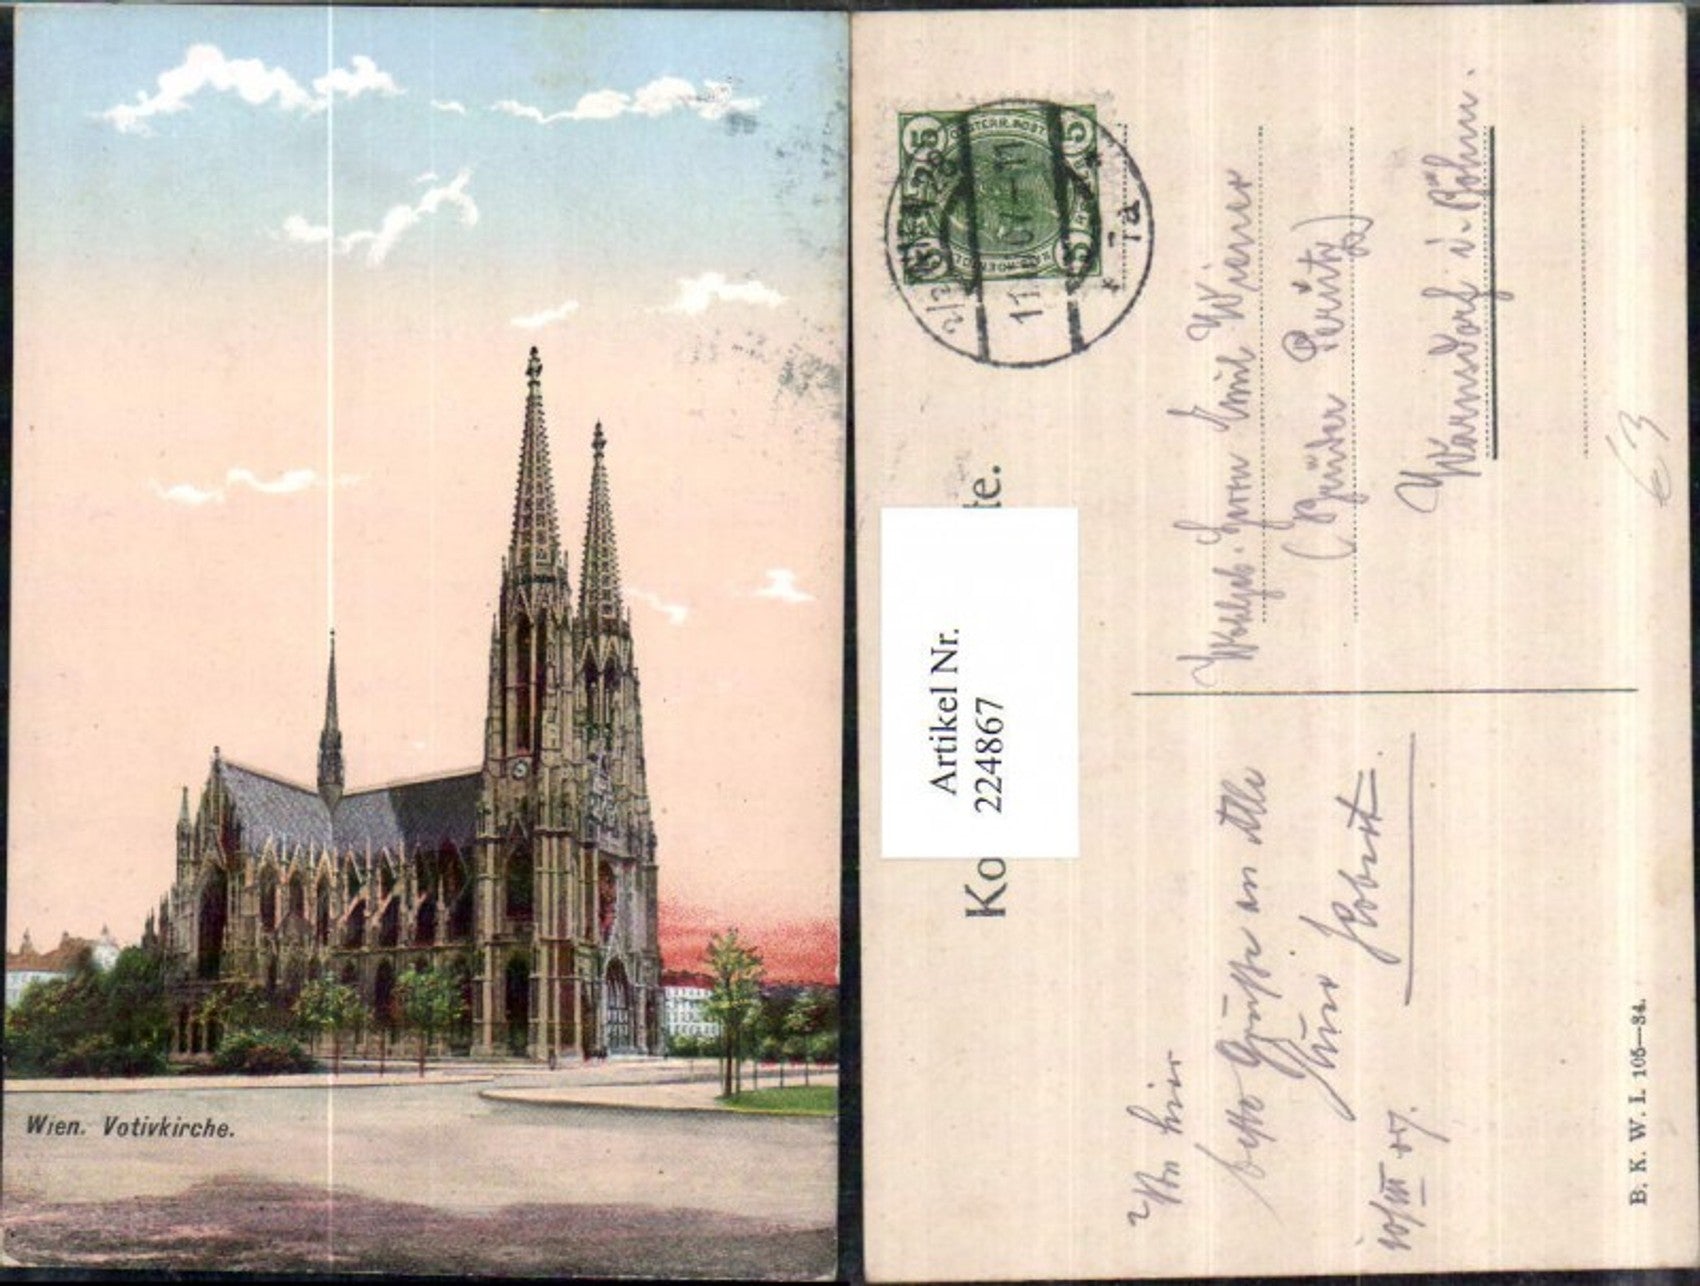 Wien. Votivkirche.
Ko te.
Artikel Nr.
224867
5 5
ÖSTERR. POST.
5 5
2/2 WIEN
7a
Wohlgeb. Herrn Emil Wiener
(Brüder Perutz)
Warnsdorf i. Böhm.
63
Von hier
beste Grüße an Alle
Euer Robert
10/III 07.
B. K. W. I. 105—34.